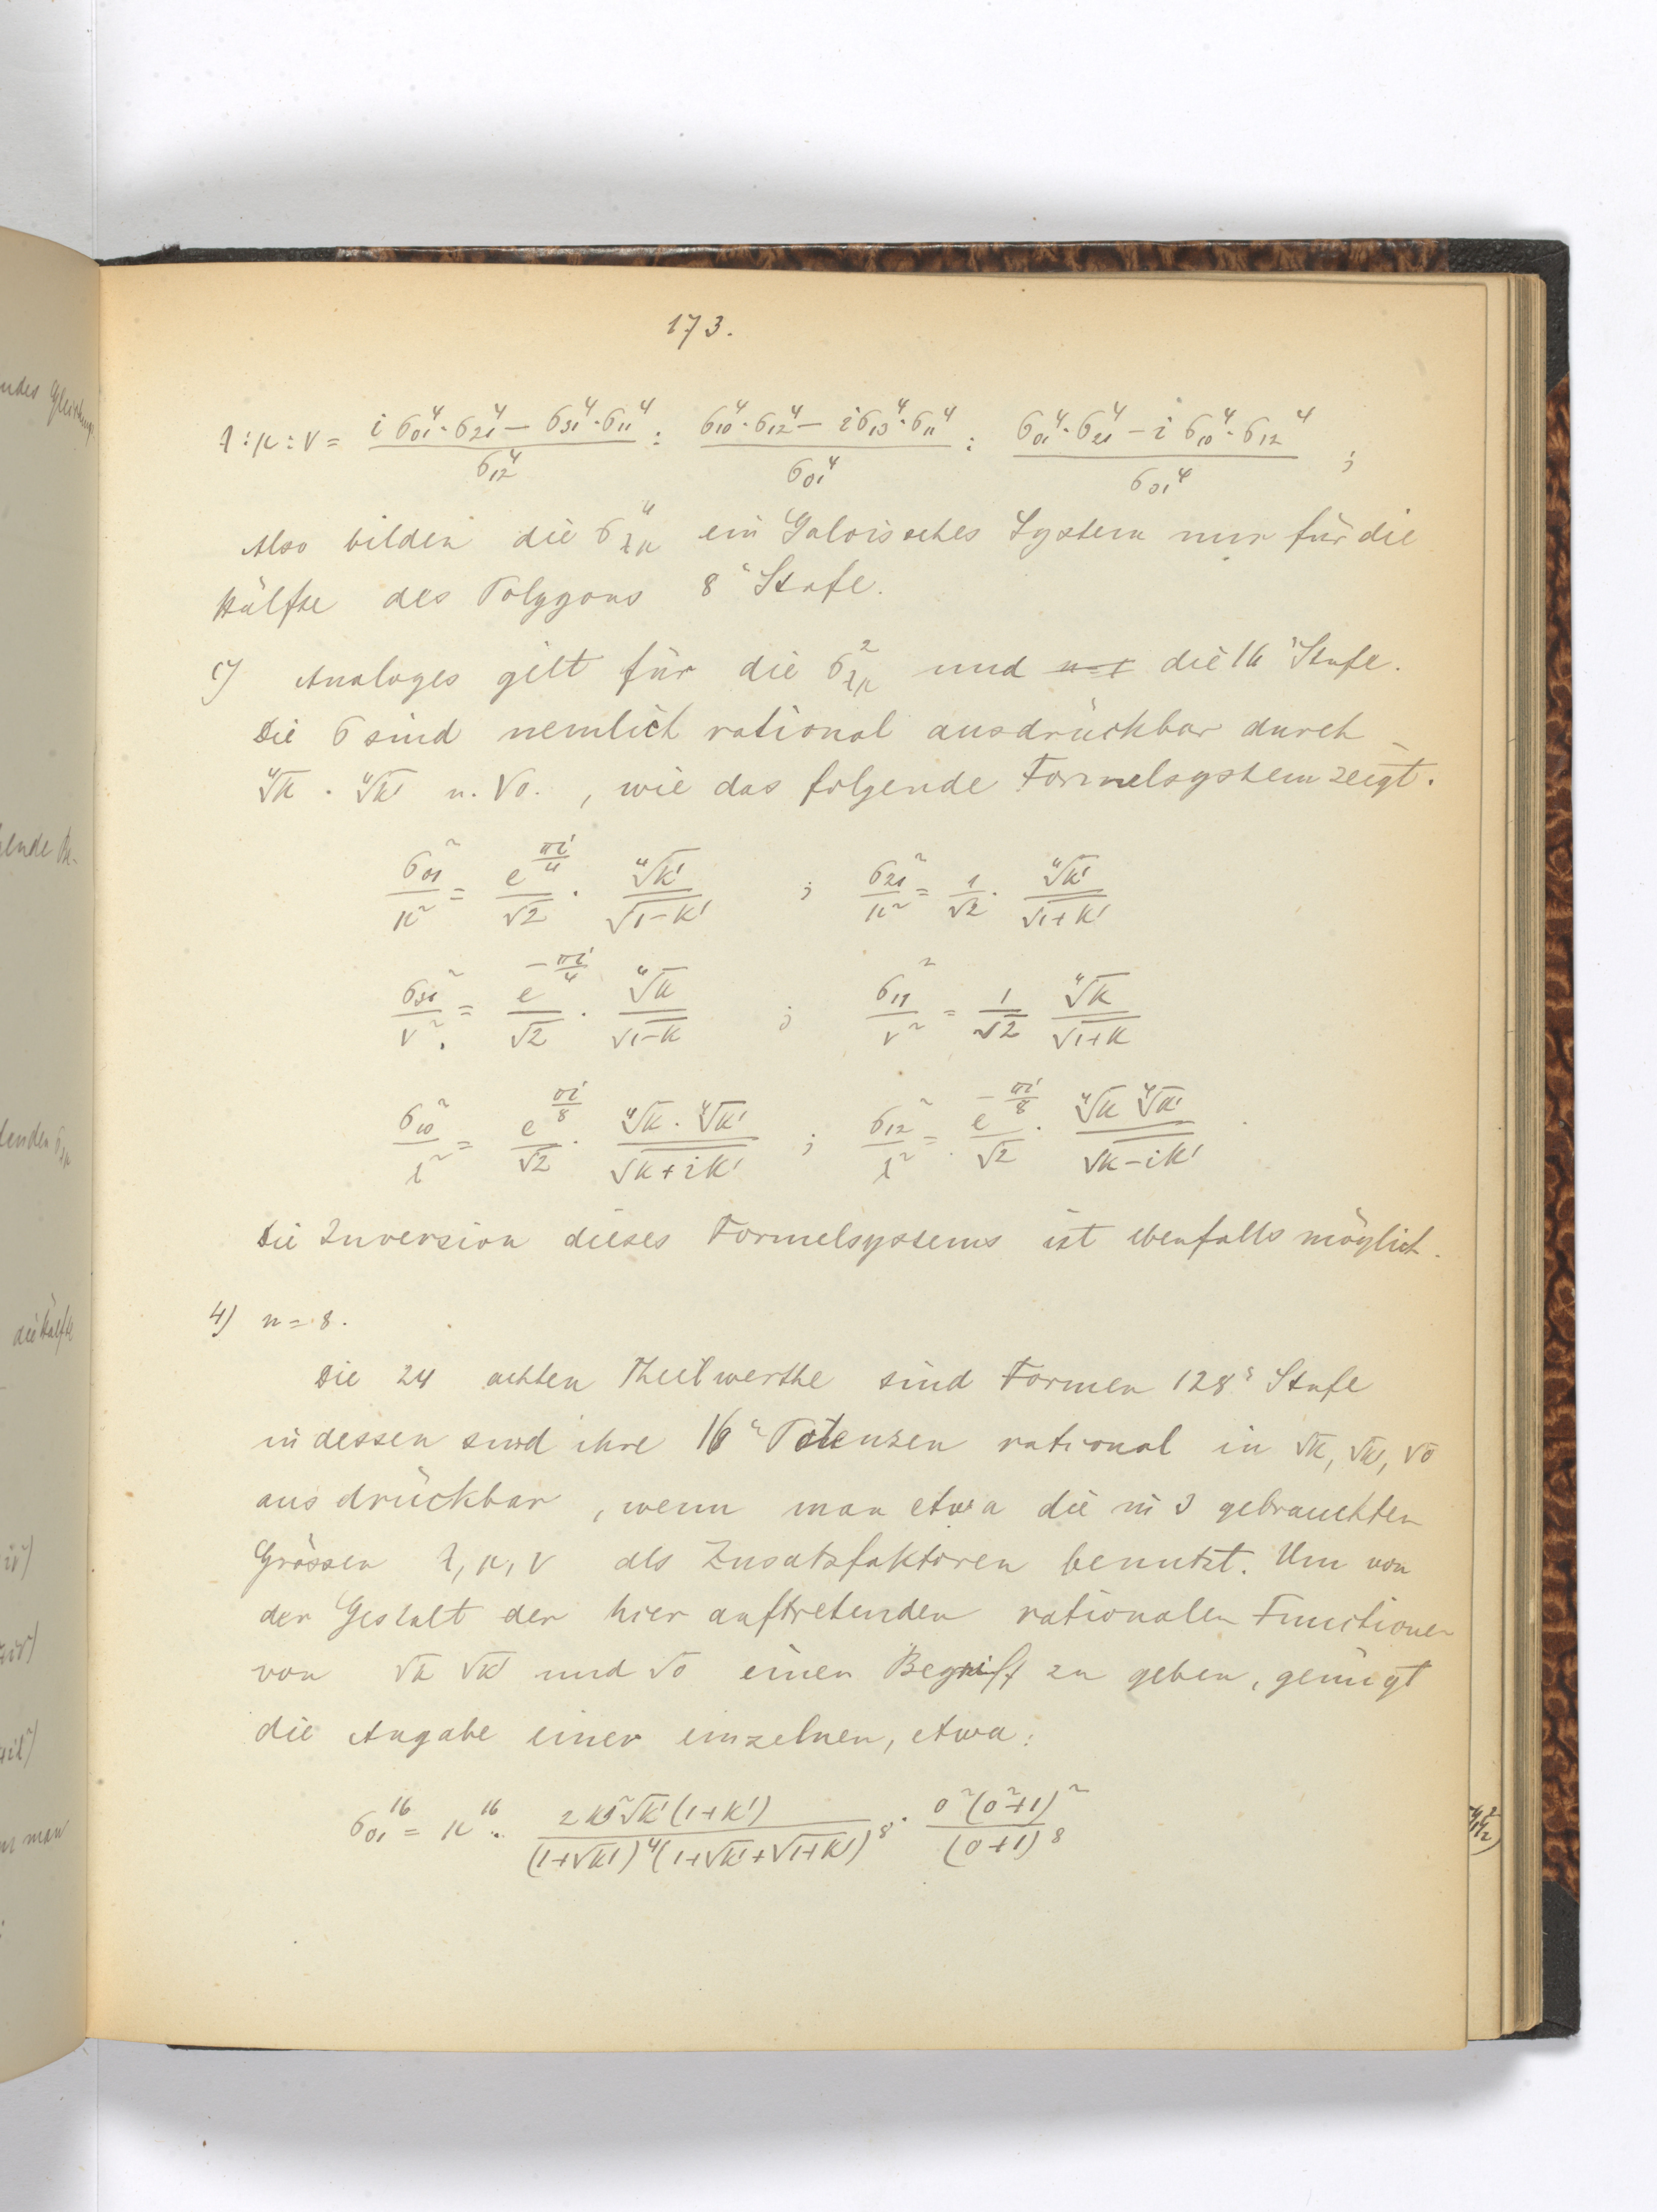 173.
λ:μ:ν = (i σ₀₁⁴·σ₂₁⁴ − σ₃₁⁴·σ₁₁⁴)/σ₁₂⁴ : (σ₁₀⁴·σ₁₂⁴ − i σ₁₃⁴·σ₁₁⁴)/σ₀₁⁴ : (σ₀₁⁴·σ₂₁⁴ − i σ₁₀⁴·σ₁₂⁴)/σ₀₁⁴ ;
Also bilden die σ_λμ⁴ ein Galoissches System nur für die
Hälfte des Polygons 8ͬ Stufe.
c) Analoges gilt für die σ_λμ² und die 16ͬ Stufe.
Die σ sind nemlich rational ausdrückbar durch
⁴√k · ⁴√k' u. √o. , wie das folgende Formelsystem zeigt.
σ₀₁²/μ² = e^(πi/4)/√2 · ⁴√k'/√(1−k') ; σ₂₁²/μ² = 1/√2 · ⁴√k'/√(1+k')
σ₃₁²/ν² = e^(−πi/4)/√2 · ⁴√k/√(1−k) ; σ₁₁²/ν² = 1/√2 ⁴√k/√(1+k)
σ₁₀²/λ² = e^(πi/8)/√2 · ⁴√k · ⁴√k'/√(k+ik') ; σ₁₂²/λ² = e^(−πi/8)/√2 · ⁴√k ⁴√k'/√(k−ik')
Die Inversion dieses Formelsystems ist ebenfalls möglich.
4) n = 8.
Die 24 achten Theilwerthe sind Formen 128ͬ Stufe
indessen sind ihre 16ͭ Potenzen rational in √k, √k', √o
ausdrückbar, wenn man etwa die in 3 gebrauchten
Grössen λ, μ, ν als Zusatzfaktoren benutzt. Um von
der Gestalt der hier auftretenden rationalen Functionen
von √k √k' und √o einen Begriff zu geben, genügt
die Angabe einer einzelnen, etwa:
σ₀₁¹⁶ = μ¹⁶ · 2k'²√k'(1+k')/((1+√k')⁴(1+√k'+√(1+k'))⁸) · o²(o²+1)²/(o+1)⁸